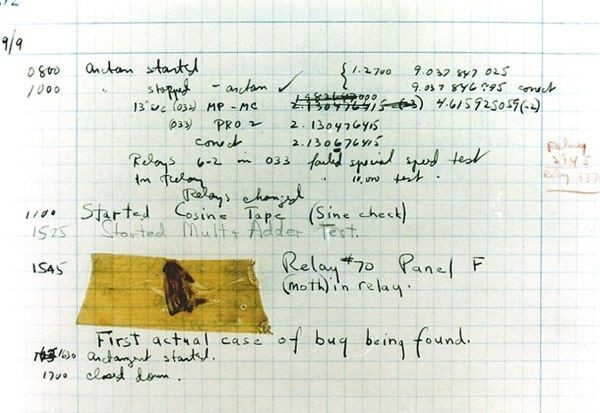 9/9
0800 Antan started
1000 " stopped - antan ✓ { 1.2700 9.037 847 025
9.037 846 995 conect
13" uc (032) MP - MC 4.615925059(-2)
(033) PRO 2 2.130476415
conect 2.130676415
Relays 6-2 in 033 failed special speed test
in Relay " 10,000 test .
Relays changed
1100 Started Cosine Tape (Sine check)
1525 Started Mult + Adder Test.
1545 Relay #70 Panel F
(moth) in relay.
First actual case of bug being found.
1630 antangent started.
1700 closed down .
Relay
3370